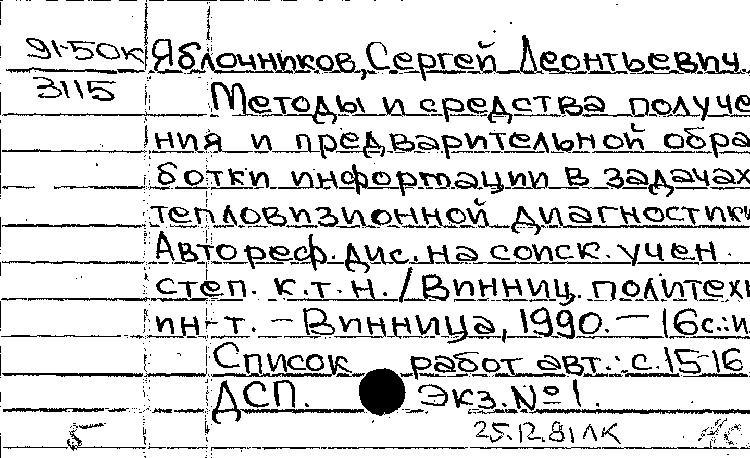 91-50к Яблочников, Сергей Леонтьевич.
3115 Методы и средства получе
ния и предварительной обра
ботки информации в задачах
тепловизионной диагностики
Автореф. дис. на соиск. учен.
степ. к.т.н. / Винниц. политехн
ин-т. - Винница, 1990. - 16с.:и
Список работ авт.: с.15-16
ДСП. Экз. №1.
5 25.12.91 ЛК